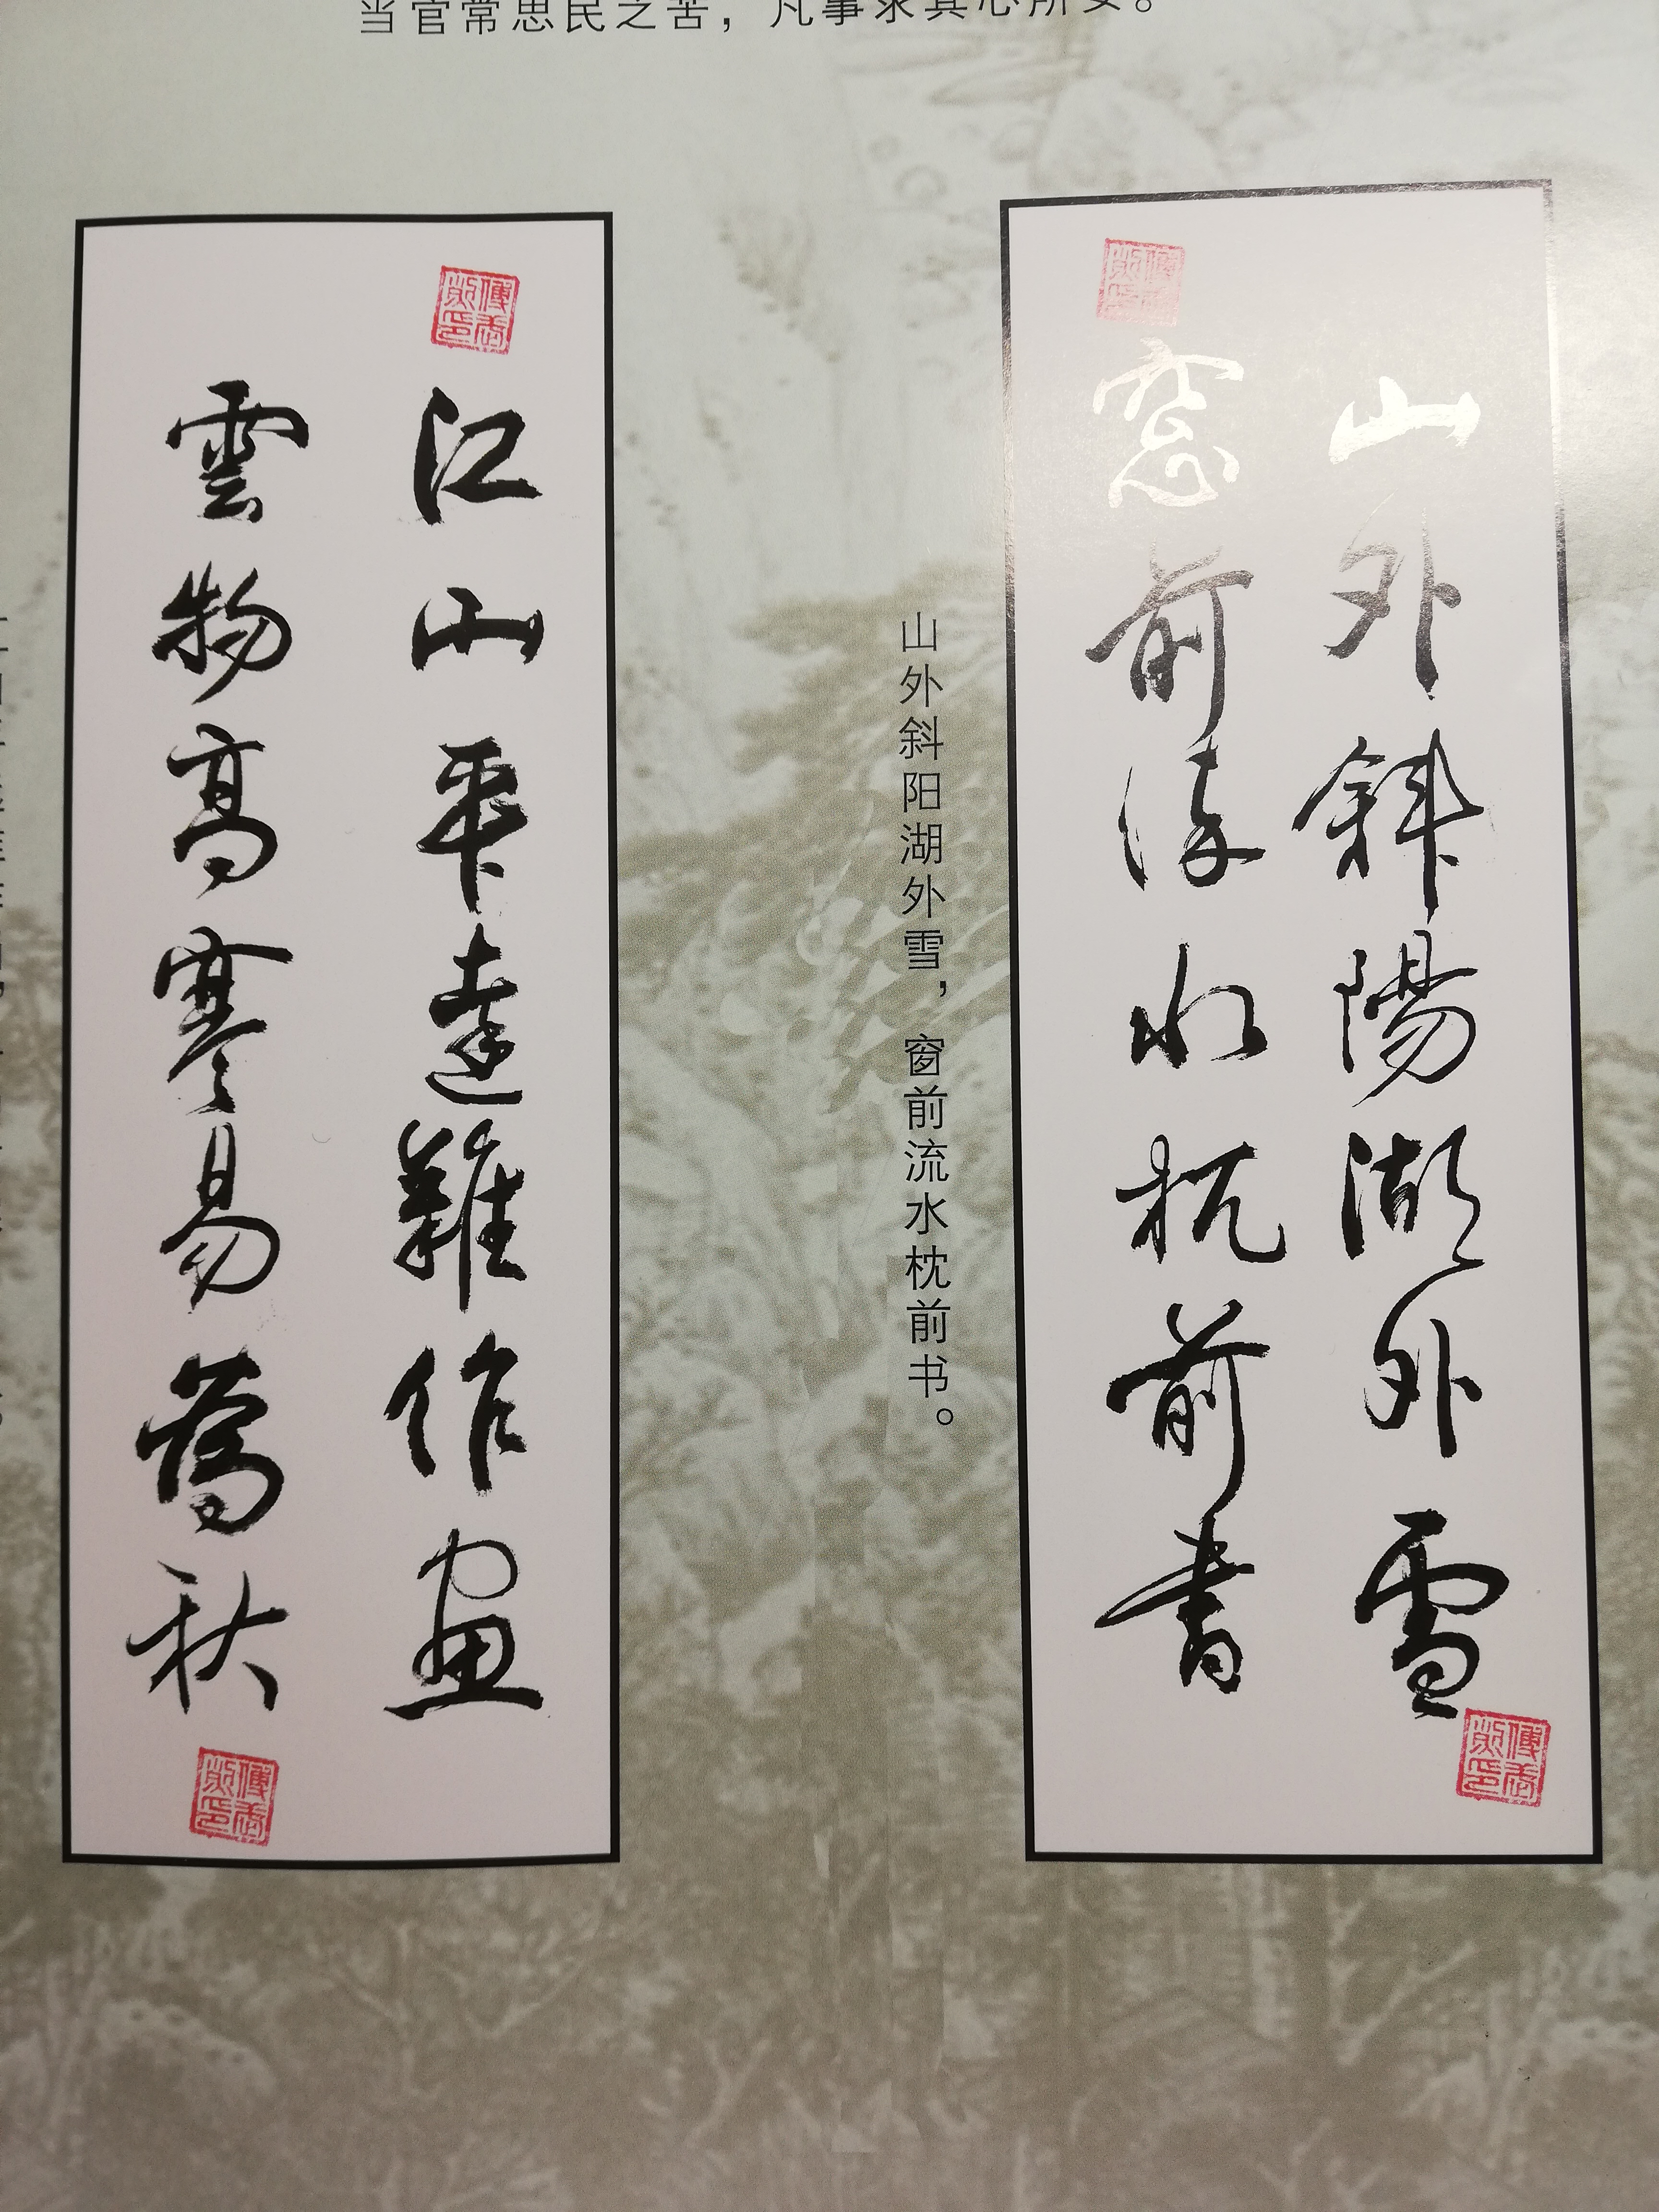 当官常思民之苦，凡事求其心所安。
山外斜陽湖外雪
窓前流水枕前書
山外斜阳湖外雪，窗前流水枕前书。
江山平遠難作画
雲物高寒易萬秋